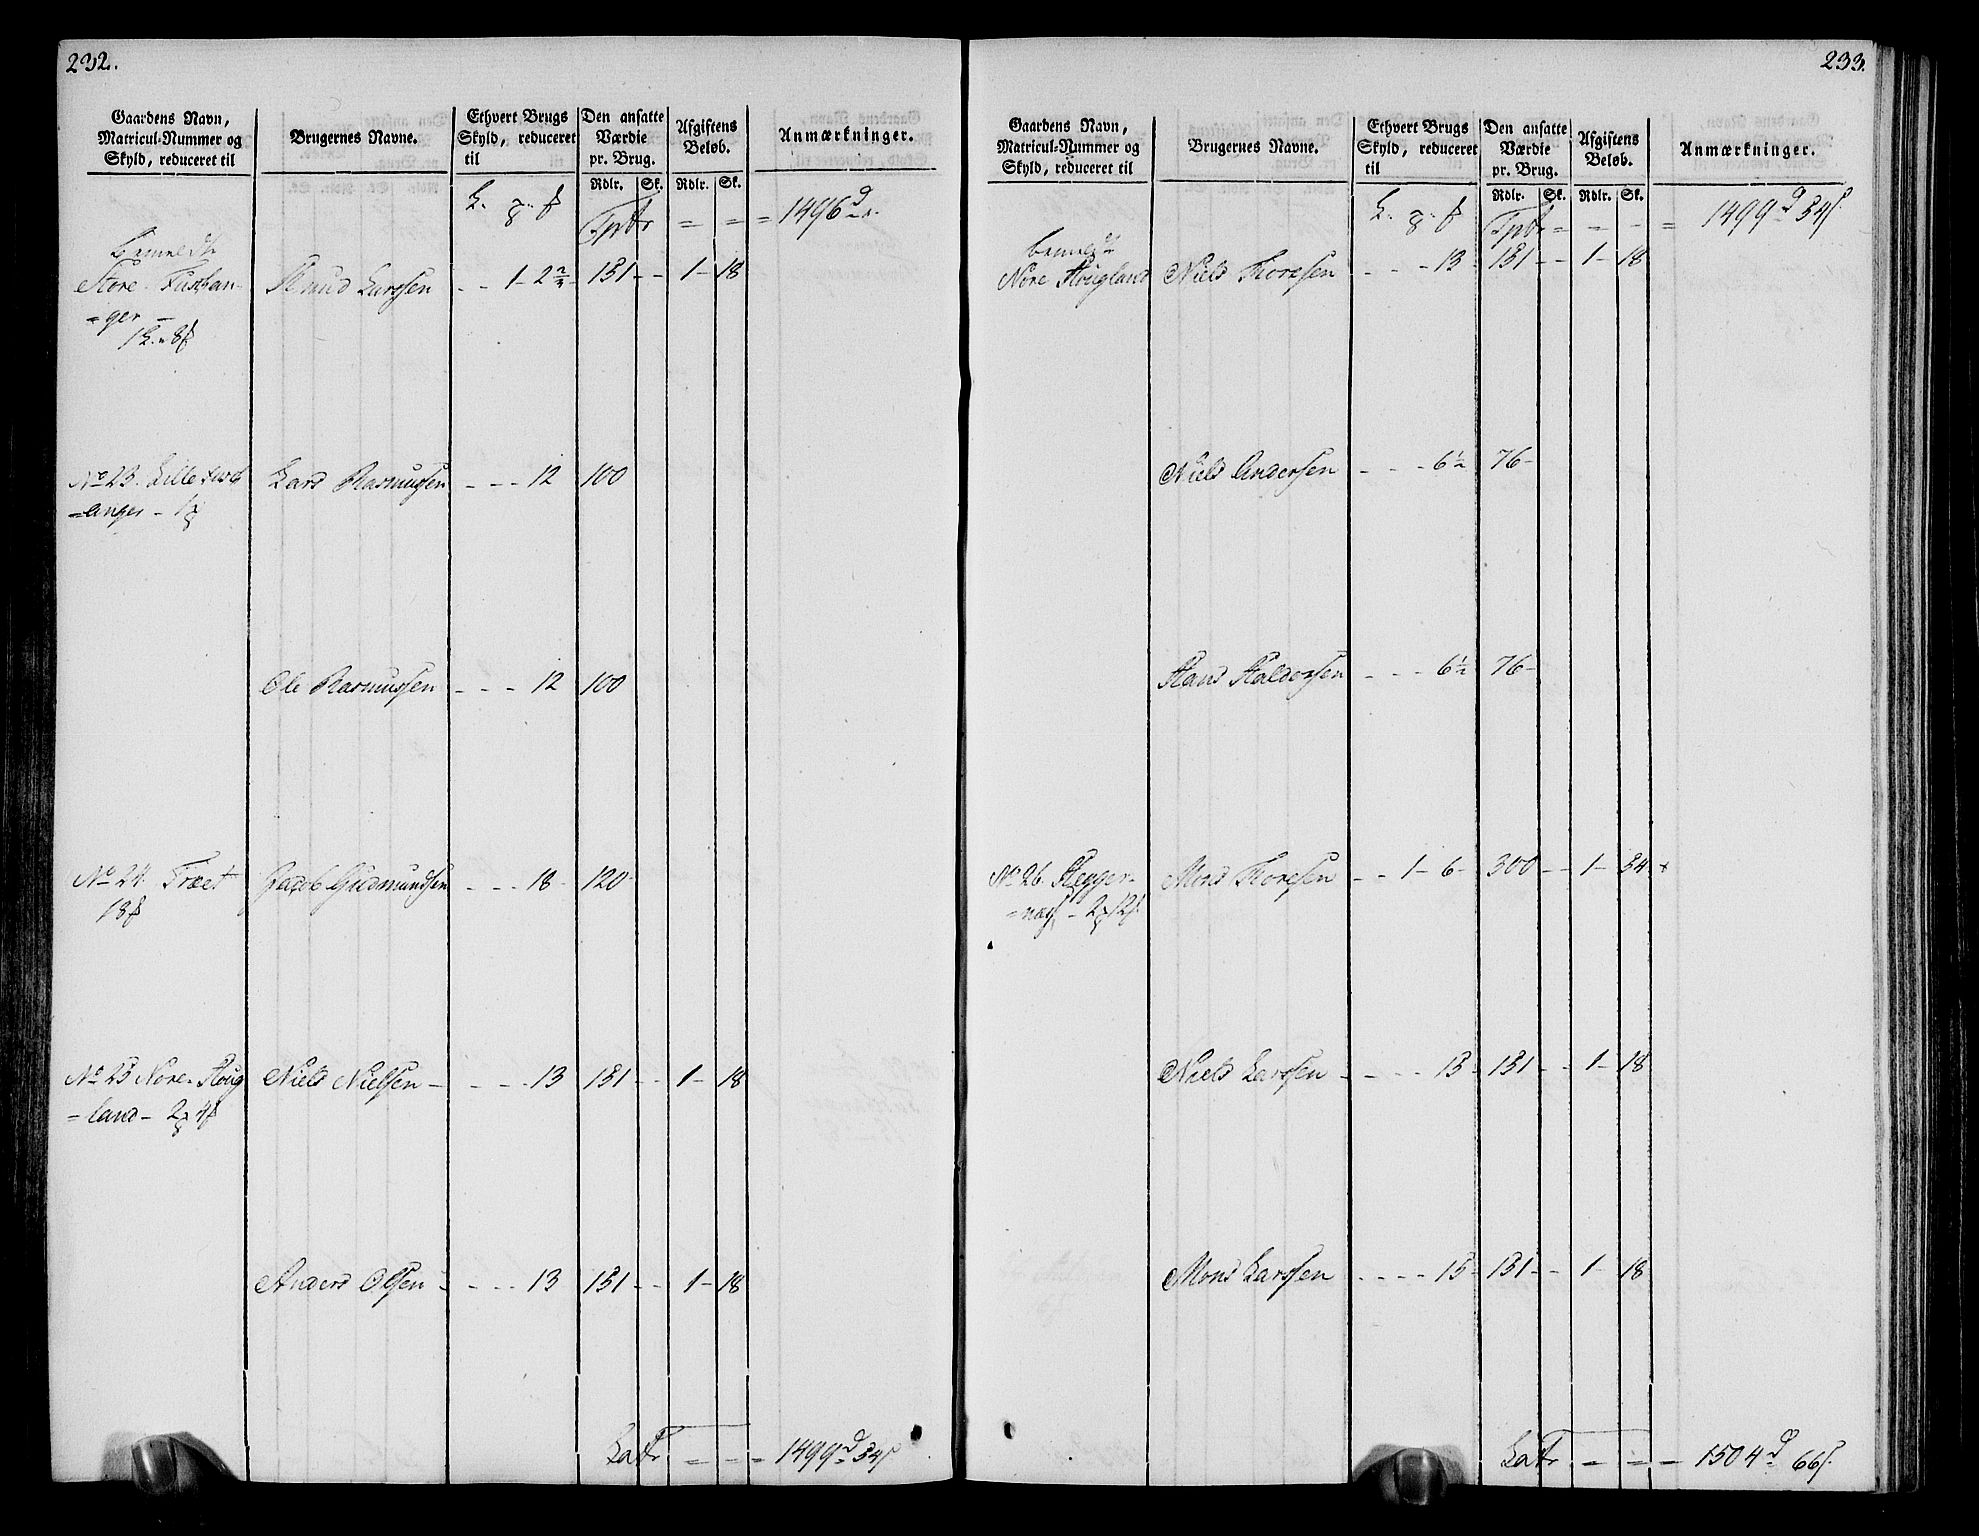 232.
Gaardens Navn,
Matricul-Nummer og
Skyld, reduceret til
Brugernes Navne.
Ethvert Brugs
Skyld, reduceret
til
Den ansatte
Værdie
pr. Brug.
Rdlr. Sk.
Afgiftens
Beløb.
Rdlr. Sk.
Anmærkninger.
Tpt = = = 1496
bemeldte
Store Fusshan-
=ger
Knud Larssen - - 1 - 2 2/3 - 131 - - 1 - 18
No 23. Lille Fuss
=anger - 1
Lars Rasmussen - - - 12 100
Ole Rasmussen - - - 12 100
No 24. Træet
18
Jacob Gudmundsen - - - 18 - 120
No 25 Nore Houg
=land - 2 4
Niels Nielsen - - - 13 131 - - 1 - 18
Anders Olsen - - - 13 131 - - 1 - 18
Latr = - = 1499 54
233.
Gaardens Navn,
Matricul-Nummer og
Skyld, reduceret til
Brugernes Navne.
Ethvert Brugs
Skyld, reduceret
til
Den ansatte
Værdie
pr. Brug.
Rdlr. Sk.
Afgiftens
Beløb.
Rdlr. Sk.
Anmærkninger.
Tpt = - - = 1499 54
bemeldte
Nore Hougland
Niels Thoresen - - - 13 - 131 - - 1 - 18
Niels Andersen - - - 6 1/2 76 -
Hans Haldorsen - - - 6 1/2 76 -
No 26. Hegger-
=næs - 2 12
Mons Thoresen - - 1 - 6 - 300 - - 1 - 54
Niels Larssen - - - 15 - 131 - - 1 - 18
Mons Larssen - - - - 15 - 131 - - 1 - 18
Latr = = = 1504 66